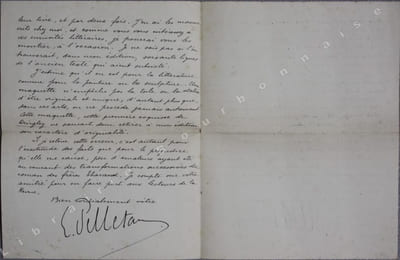 leur livre, et par deux fois. J'en ai les manus-
crits chez moi, et comme vous vous intéressez à
ces curiosités littéraires, je pourrai vous les
montrer, à l'occasion. Je ne sais pas si l'on
trouverait, dans mon édition, soixante lignes
de l'ancien texte qui aient subsisté.
J'estime qu'il en est pour la littérature
comme pour la peinture ou la sculpture. Une
maquette n'empêche pas la toile ou la statue
d'être originale et unique, d'autant plus que,
dans ces arts, on ne procède jamais autrement.
Cette maquette, cette première esquisse de
ne saurait donc retirer à mon édition
son caractère d'originalité.
Je relève cette erreur, c'est autant pour
l'exactitude des faits que pour le préjudice
qu'elle me cause, peu d'amateurs ayant été
au courant des transformations successives du
roman des frères Tharaud. Je compte sur votre
amitié pour en faire part aux lecteurs de la
Revue.
Bien cordialement vôtre
E. Pelletan
Librairie Bourbonnaise